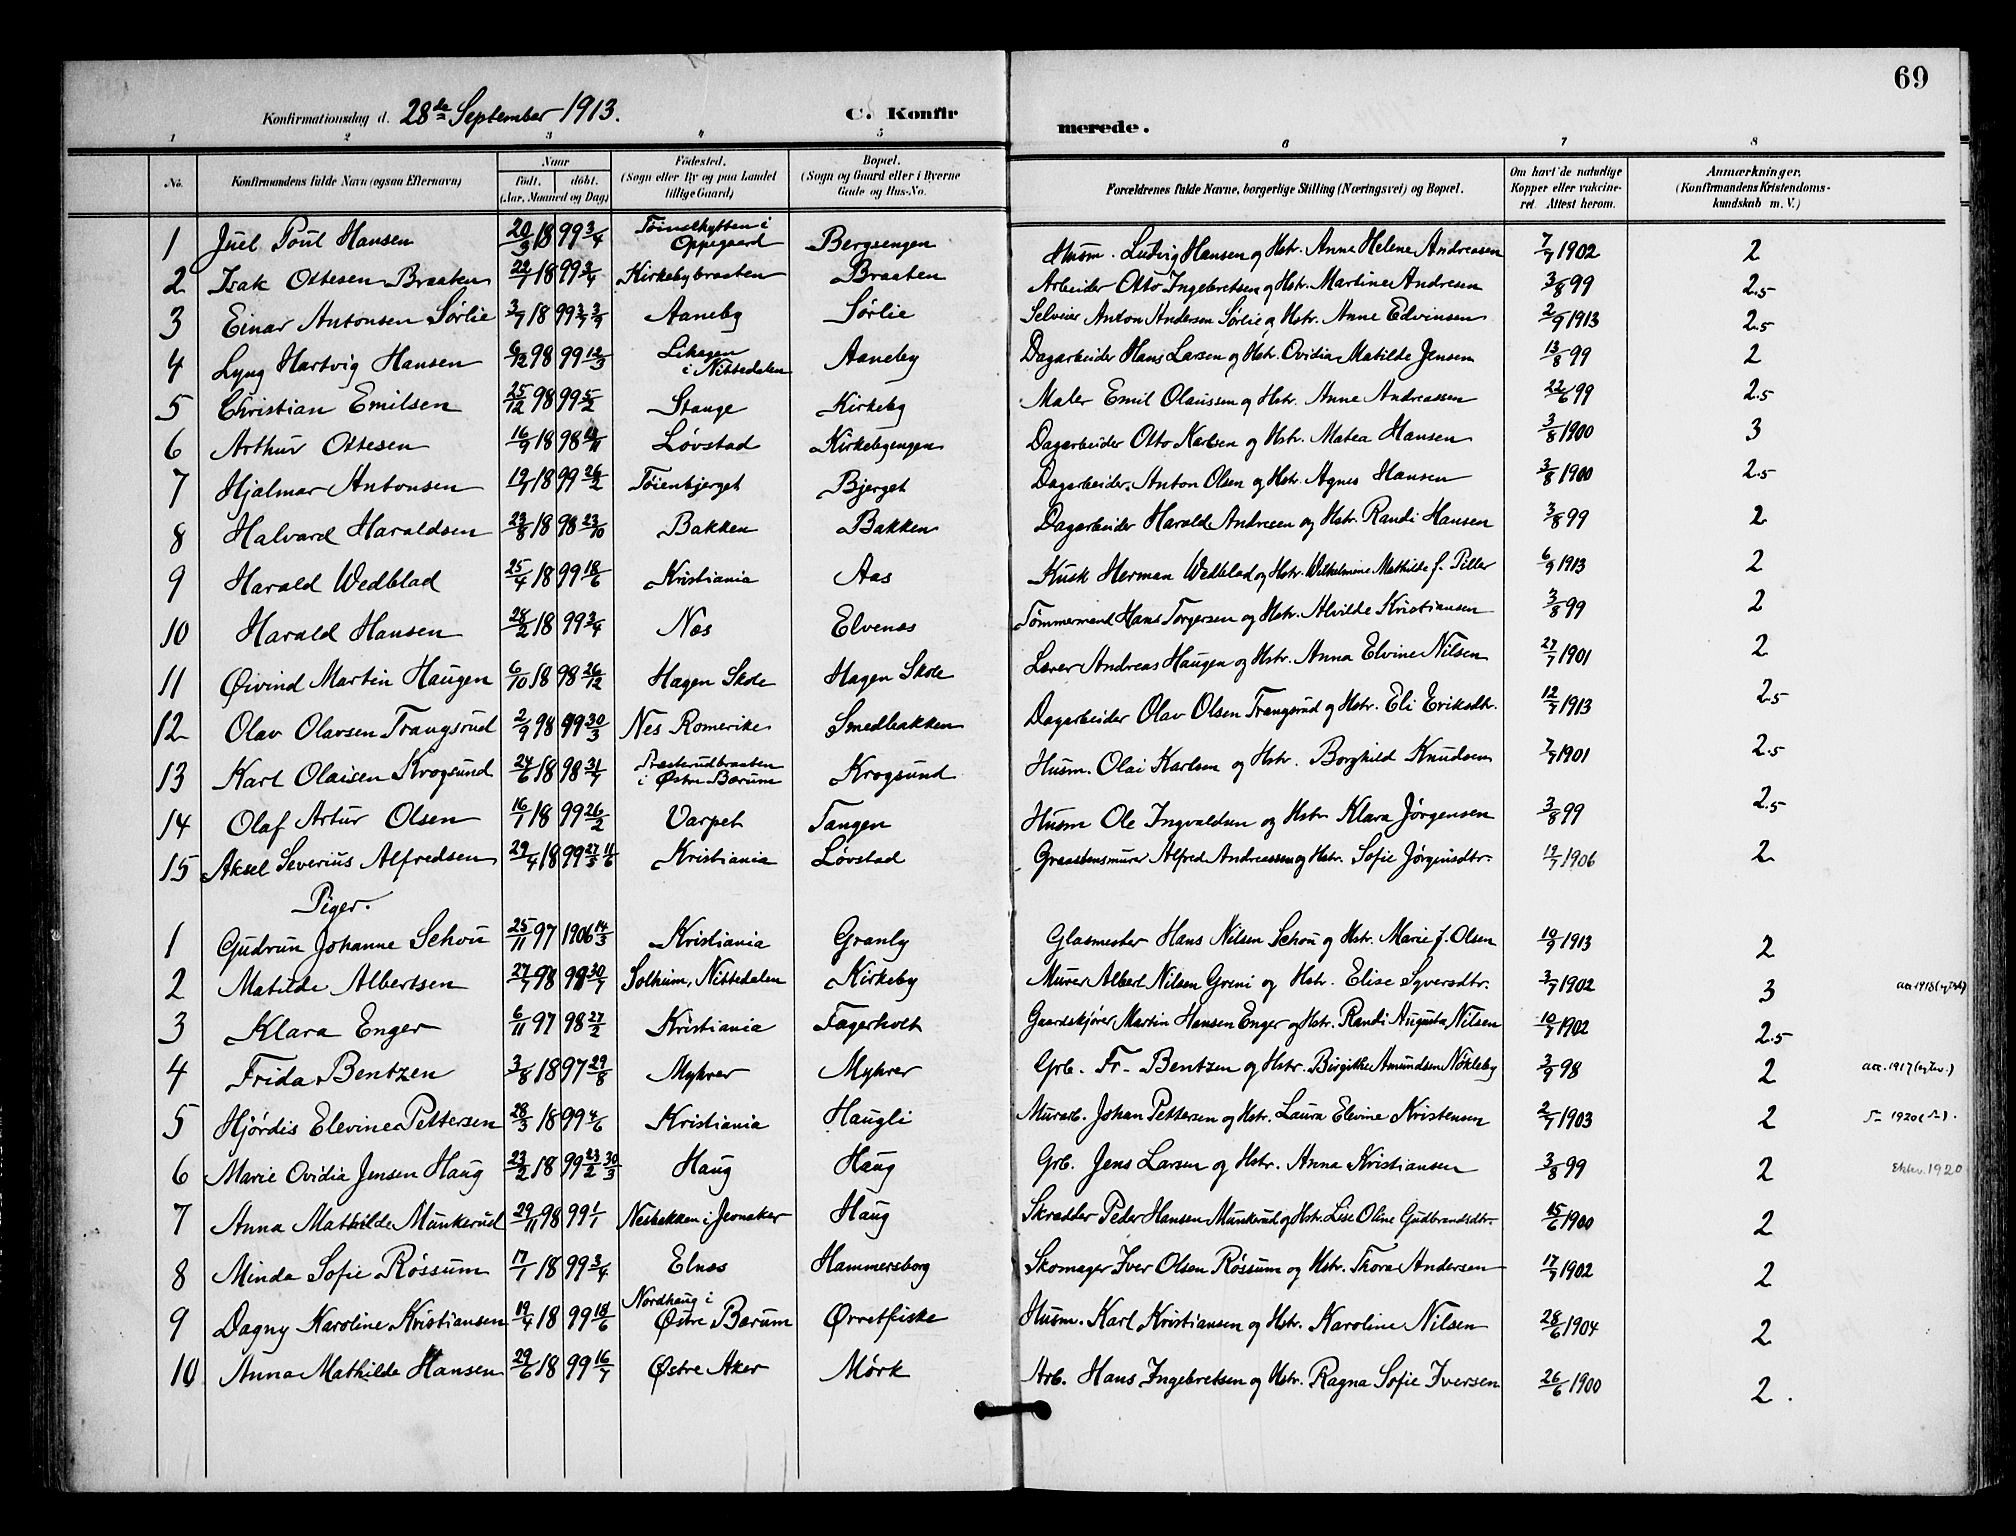 69
Konfirmationsdag d. 28de September 1913. C. Konfirmerede.
1 2 3 4 5 6 7 8
No. Konfirmandens fulde Navn (ogsaa Efternavn) Naar født. døbt. (Aar, Maaned og Dag) Fødested. (Sogn eller By og paa Landet tillige Gaard) Bopæl. (Sogn og Gaard eller i Byerne Gade og Hus-No. Forældrenes fulde Navne, borgerlige Stilling (Næringsvei) og Bopæl. Om havt de naturlige Kopper eller vakcineret. Attest herom. Anmærkninger. (Konfirmandens Kristendomskundskab m. V.)
1 Juel Poul Hansen 20/3 18 99 3/4 i Oppegaard Bergsengen Husm. Ludvig Hansen og Hstr. Anne Helene Andreasen 7/9 1902 2
2 Isak Ottesen Braaten 22/1 18 99 3/4 Kirkebybraaten Braaten Arbeider Otto Ingebretsen og Hstr. Martine Andresen 3/8 99 2.5
3 Einar Antonsen Sørlie 3/7 18 99 3/7 3/9 Aaneby Sørlie Selveier Anton Andersen Sørlie og Hstr. Anne Edvinsen 2/9 1913 2.5
4 Lyng Hartvig Hansen 6/12 98 99 12/3 i Nittedalen Aaneby Dagarbeider Hans Larsen og Hstr. Ovidia Matilde Jensen 13/8 99 2
5 Christian Emilsen 25/12 98 99 5/2 Stange Kirkeby Maler Emil Olaussen og Hstr. Anne Andreassen 22/6 99 2.5
6 Arthur Ottesen 16/9 18 98 Løvstad Kirkebyengen Dagarbeider Otto Karlsen og Hstr. Matea Hansen 3/8 1900 3
7 Hjalmar Antonsen 19/1 18 99 26/2 Tøienbjerget Bjerget Dagarbeider Anton Olsen og Hstr. Agnes Hansen 3/8 1900 2.5
8 Halvard Haraldsen 23/8 18 98 23/10 Bakken Bakken Dagarbeider Harald Andresen og Hstr. Randi Hansen 3/8 99 2
9 Harald Wedblad 25/4 18 99 18/6 Kristiania Aas Kusk Herman Wedblad og Hstr. Wilhelmine Mathilde f. Piller 6/9 1913 2
10 Harald Hansen 28/2 18 99 3/4 Nes Elvenes Tømmermand Hans Torgersen og Hstr. Alvilde Kristiansen 3/8 99 2
11 Øivind Martin Haugen 6/10 18 98 26/12 Hagen Skole Hagen Skole Lærer Andreas Haugen og Hstr. Anna Elvine Nilsen 27/7 1901 2
12 Olav Olavsen Trangsrud 2/9 98 99 30/3 Nes Romerike Smedbakken Dagarbeider Olav Olsen Trangsrud og Hstr. Eli Eriksdtr. 12/7 1913 2.5
13 Karl Olaisen Krogsund 24/6 18 98 31/7 i Østre Bærum Krogsund Husm. Olai Karlsen og Hstr. Borghild Knudsen 7/9 1901 2.5
14 Olaf Artur Olsen 16/1 18 99 26/2 Varpet Tangen Husm Ole Ingvaldsen og Hstr Klara Jørgensen 3/8 99 2.5
15 Aksel Severius Alfredsen 29/4 18 99 27/5 11/6 Kristiania Løvstad Graastensmurer Alfred Andreassen og Hstr. Sofie Jørginsdtr. 19/7 1906 2
Piger.
1 Gudrun Johanne Schou 25/11 97 1906 14/3 Kristiania Granly Glasmester Hans Nilsen Schou og Hstr. Marie f. Olsen 10/9 1913 2
2 Matilde Albertsen 27/7 98 99 30/7 Solheim, Nittedalen Kirkeby Murer Albert Nilsen Greni og Hstr. Elise Syversdtr. 3/7 1902 3
3 Klara Enger 6/11 97 98 27/2 Kristiania Fagerholt Gaardskjører Martin Hansen Enger og Hstr. Randi Augusta Nilsen 10/7 1902 2.5
4 Frida Bentzen 3/8 18 97 29/8 Myhrer Myhrer Grb. Fr. Bentzen og Hstr. Birgitte Amundsen Nøkleby 3/9 98 2 att. 1917
5 Hjørdis Elevine Pettersen 28/3 18 99 4/6 Kristiania Haugli Murarb. Johan Pettersen og Hstr. Laura Elevine Kristensen 2/7 1903 2 1920
6 Marie Ovidia Jensen Haug 23/2 18 99 23/2 30/3 Haug Haug Grb. Jens Larsen og Hstr. Anna Kristiansen 3/8 99 2 1920
7 Anna Mathilde Munkerud 29/11 98 99 1/1 Nesbakken i Jevnaker Haug Skrædder Peder Hansen Munkerud og Hstr. Lise Oline Gudbrandsdtr. 15/6 1900 2
8 Minda Sofie Røssum 17/1 18 99 3/4 Elnes Hammersborg Skomager Iver Olsen Røssum og Hstr. Thora Andersen 17/7 1902 2
9 Dagny Karoline Kristiansen 19/4 18 99 18/6 Nordhaug i Østre Bærum Ørretfiske Husm. Karl Kristiansen og Hstr. Karoline Nilsen 28/6 1904 2
10 Anna Mathilde Hansen 29/6 18 99 16/7 Østre Aker Mørk Arb. Hans Ingebretsen og Hstr. Ragna Sofie Iversen 26/6 1900 2.